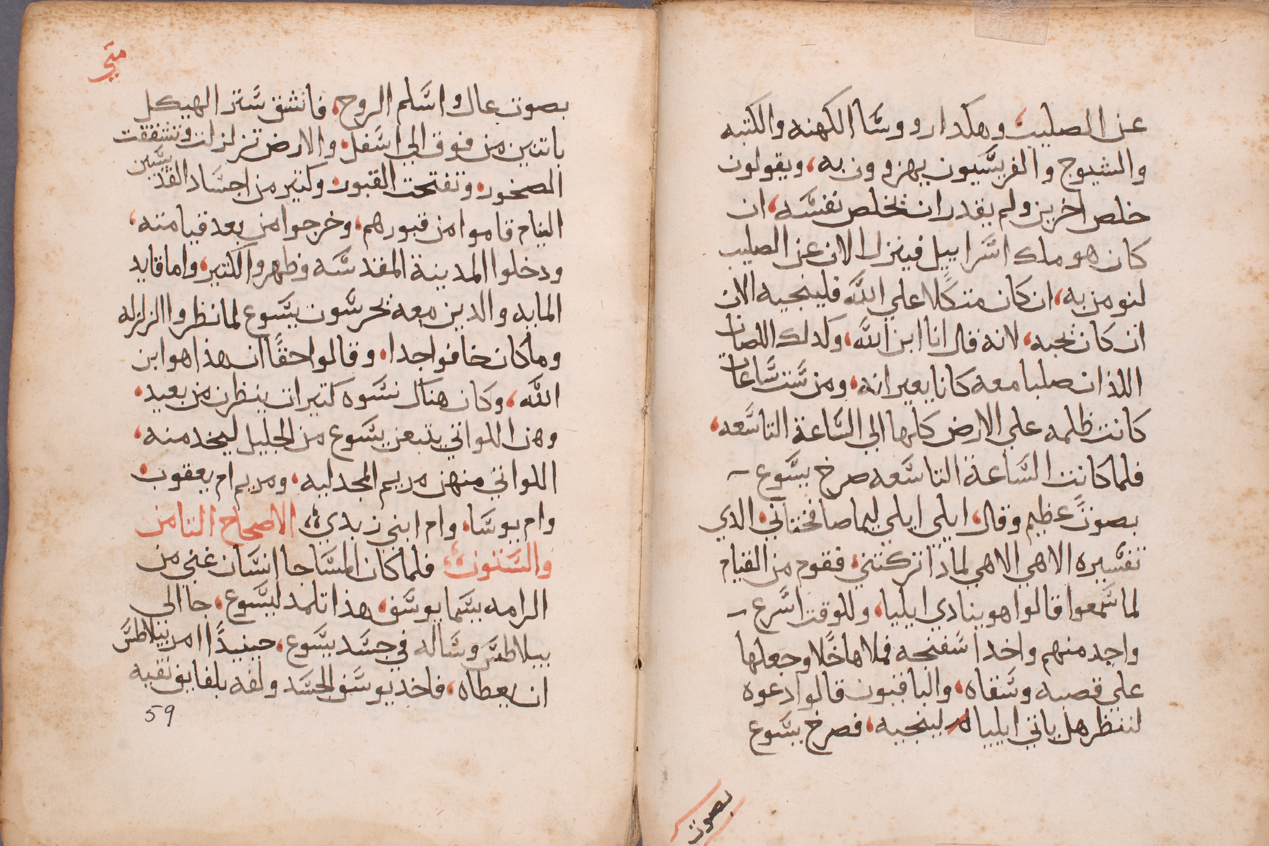 عن الصليب وهكدا رووسا الكهنه والكتبه
والشيوخ والفريسيون يهزوون به، ويقولون
خلص اخرين ولم يقدر ان يخلص نفسه، ان
كان هو ملك اسراييل فينزل الان عن الصليب
لنومن به، ان كان متكلا علي الله فلينجيه الان
ان كان يحبه، لانه قال انا ابن الله، وكدلك اللصان
اللذان صلبا معه كانا يعيرانه، ومن ست ساعات
كانت ظلمه علي الارض كلها الي الساعة التاسعه،
فلما كانت الساعة التاسعه صرخ يسوع
بصوت عظيم وقال، ايلي ايلي ليما صافختاني، الدي
تفسيره الاهي الاهي لماذا تركتني، فقوم من القيام
لما سمعوا قالوا هو ينادي ايليا، وللوقت اسرع
واحد منهم واخد اسفنجه فملاها خلا وجعلها
علي قصبه وسقاه، والباقيون قالوا دعوه
لننظر هل ياتي ايليا لينجيه، فصرخ يسوع
بصوت
متي
بصوت عال واسلم الروح، فانشق ستر الهيكل
باتنين من فوق الي اسفل، والارض تزلزلت وتشققت
الصخور، وتفتحت القبور، وكتير من اجساد القديسين
النيام قاموا من قبورهم، وخرجوا من بعد قيامته،
ودخلوا المدينة المقدسه وظهروا لكتير، واما قايد
المايه والدين معه يحرسون يسوع لما نظروا الزلزله
وما كان خافوا جدا، وقالوا حقا ان هذا هو ابن
الله، وكان هناك نسوه كتيرات ينظرن من بعيد،
وهن اللواتي يتبعن يسوع من الجليل ليخدمنه،
اللواتي منهن مريم المجدليه، ومريم ام يعقوب
وام يوسا، وام ابني زبدي الاصحاح التامن
والستون فلما كان المسا جا انسان غني من
الرامه يسما يوسف، هذا تلمد ليسوع، جا الي
بيلاطس وساله في جسد يسوع، حينيدا امر بيلاطس
ان يعطاه، فاخد يوسف الجسد ولفه بلفايف نقيه
59